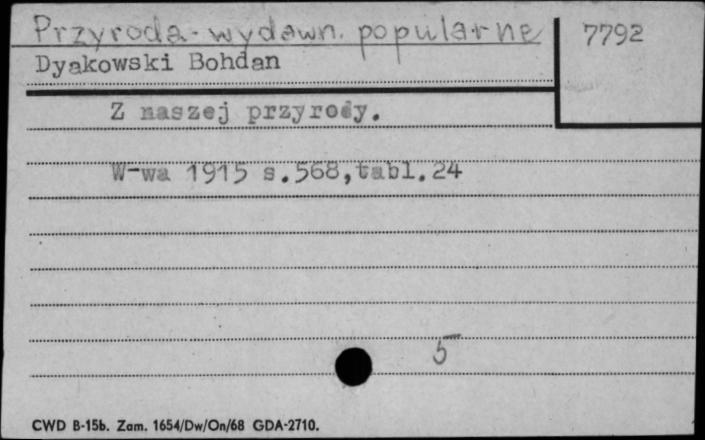 Przyroda - wydawn. popularne
7792
Dyakowski Bohdan
Z naszej przyrody.
W-wa 1915 s.568,tabl.24
5
CWD B-15b. Zam. 1654/Dw/On/68 GDA-2710.